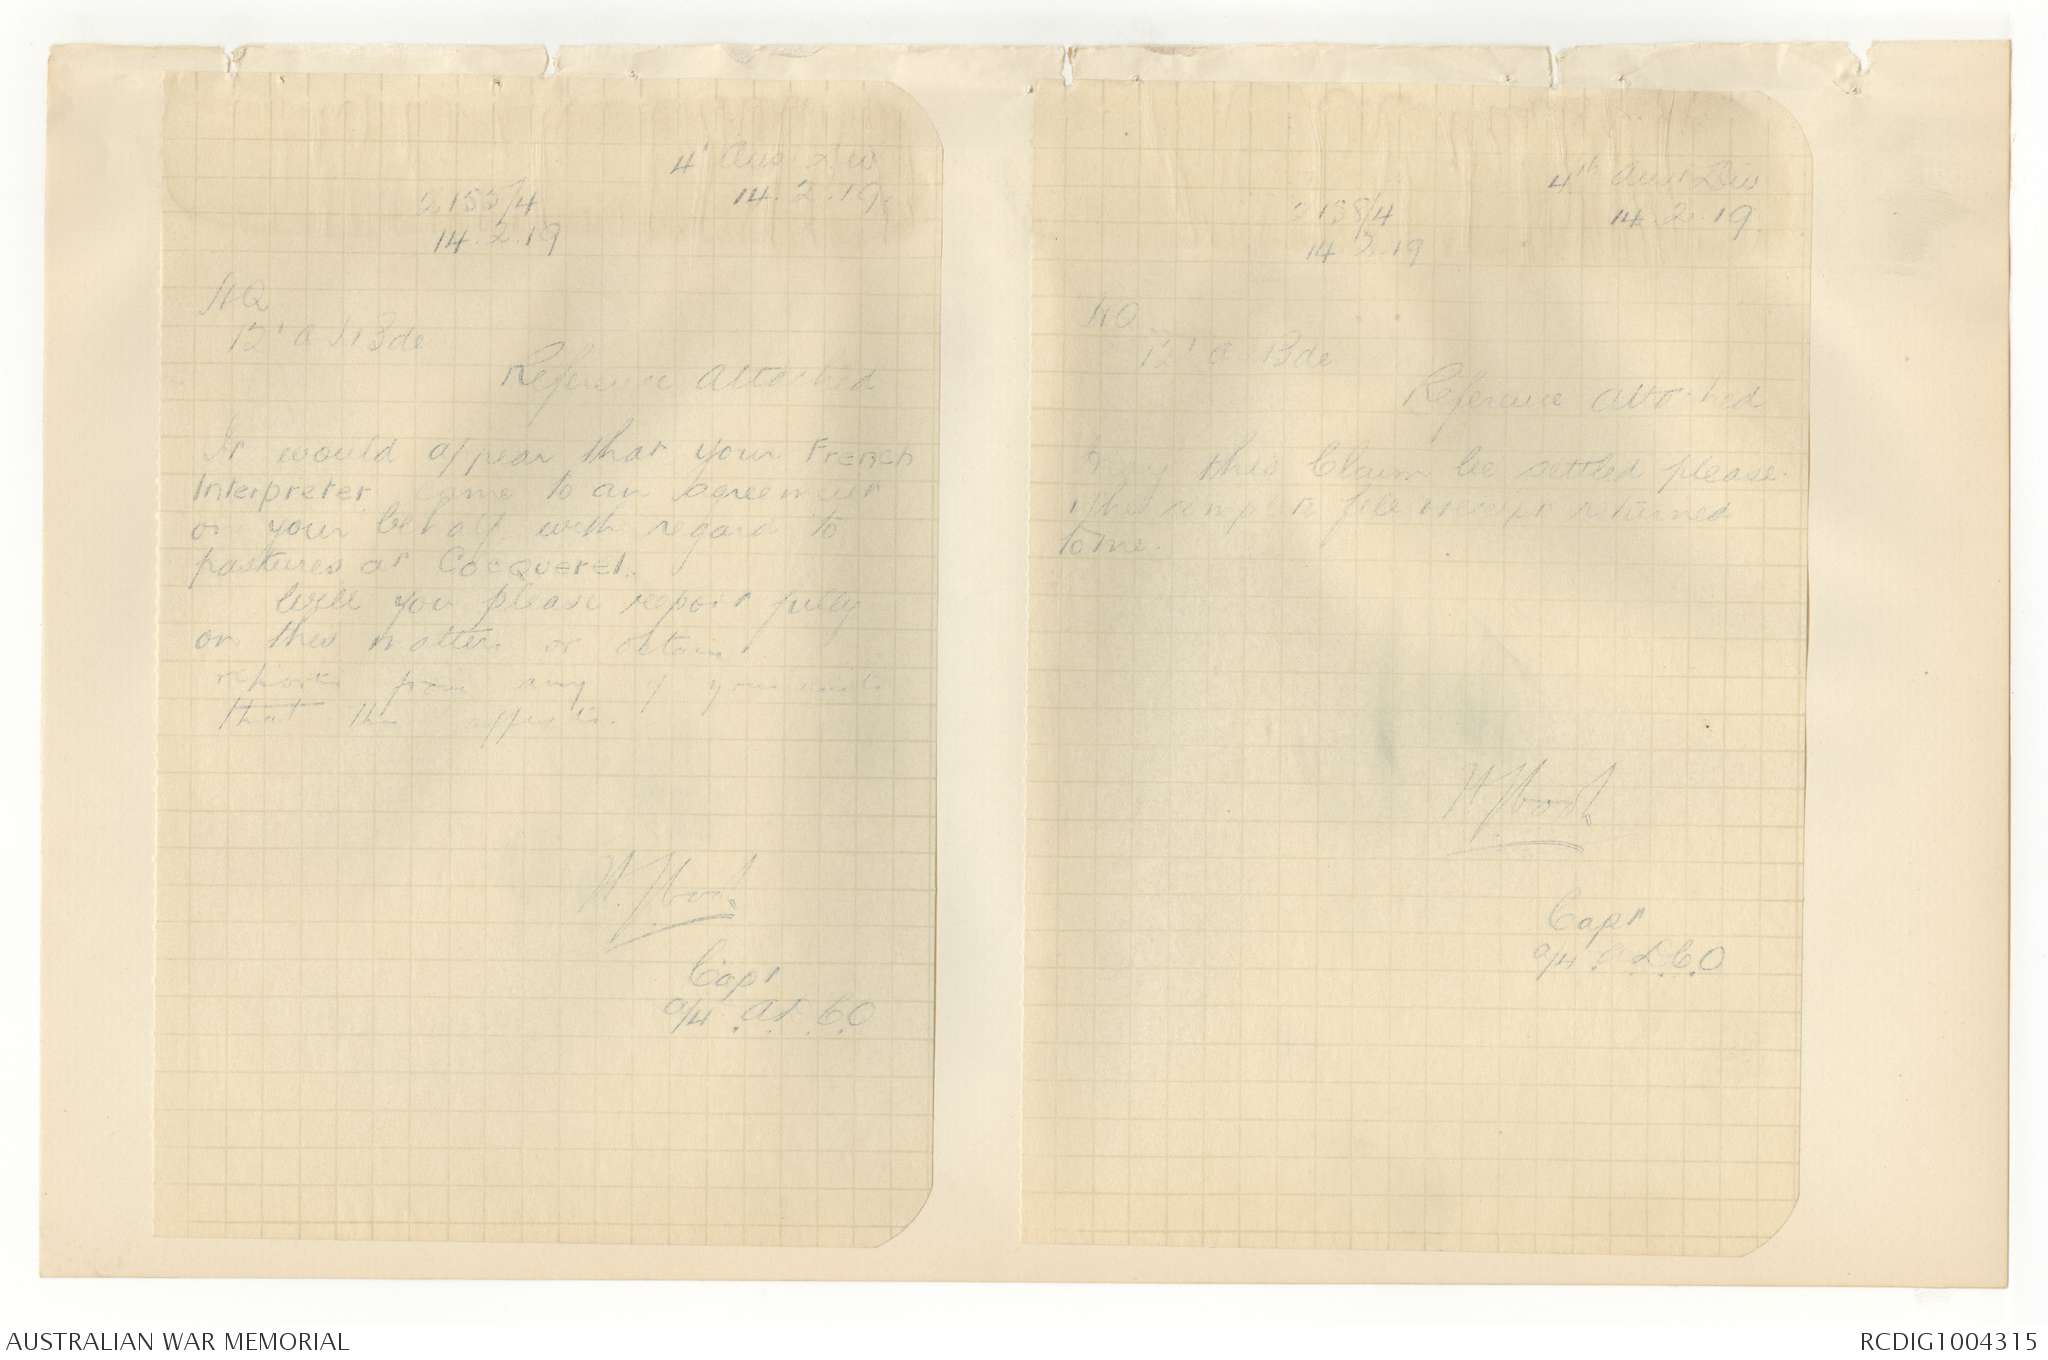 4' Aus Div
14.2.19.
2153/4
14.2.19
HQ
12' A I Bde
Reference attached
It would appear that your FRENCH
Interpreter came to an agreement
on your behalf with regard to
pastures at COCQUEREL.
Will you please report fully
on this matter or obtain
reports from any of your units
that this affects.
Capt
a/4. A.D.C.O
4th Aust Div
14.2.19.
14 2.19
HQ
12' A Bde
Reference attached
May this Claim be settled please.
file receipt returned
to me.
Capt
a/4 A.D.C.O
AUSTRALIAN WAR MEMORIAL
RCDIG1004315